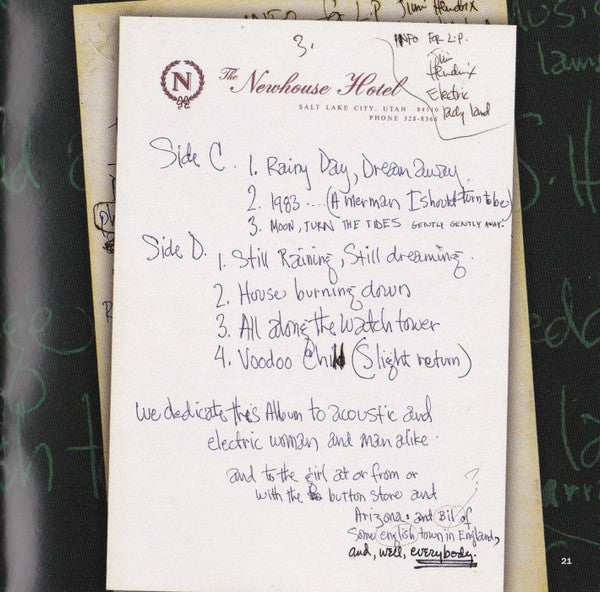 INFO for L.P. Jimi Hendrix
3.
INFO FoR L.P.
Jimi
Hendrix
Electric
Lady land
N
The Newhouse Hotel
SALT LAKE CITY, UTAH 84110
PHONE 328-8366
Side C. 1. Rainy Day, Dream away.
2. 1983 .... (A merman I should turn to be)
3. MOON, TURN THE TIDES GENTLY GENTLY AWAY.
Side D. 1. Still Raining, Still dreaming.
2. House burning down
3. All along the watch tower
4. Voodoo Child (Slight return)
We dedicate this Album to acoustic and
electric woman and man alike.
and to the girl at or from or
with the button store and
?
Arizona: and Bil of
Some english town in England,
and, well, everybody.
21